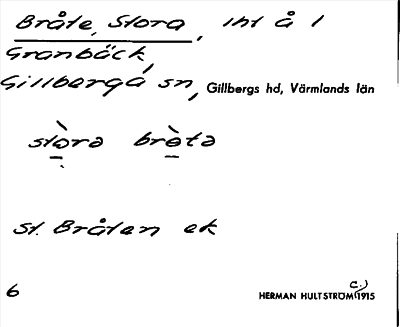 Bråte, Stora, Int å 1
Granbäck,
Gillberga sn, Gillbergs hd, Värmlands län
stòrə brètə
St. Bråten ek
6
HERMAN HULTSTRÖM (c.) 1915